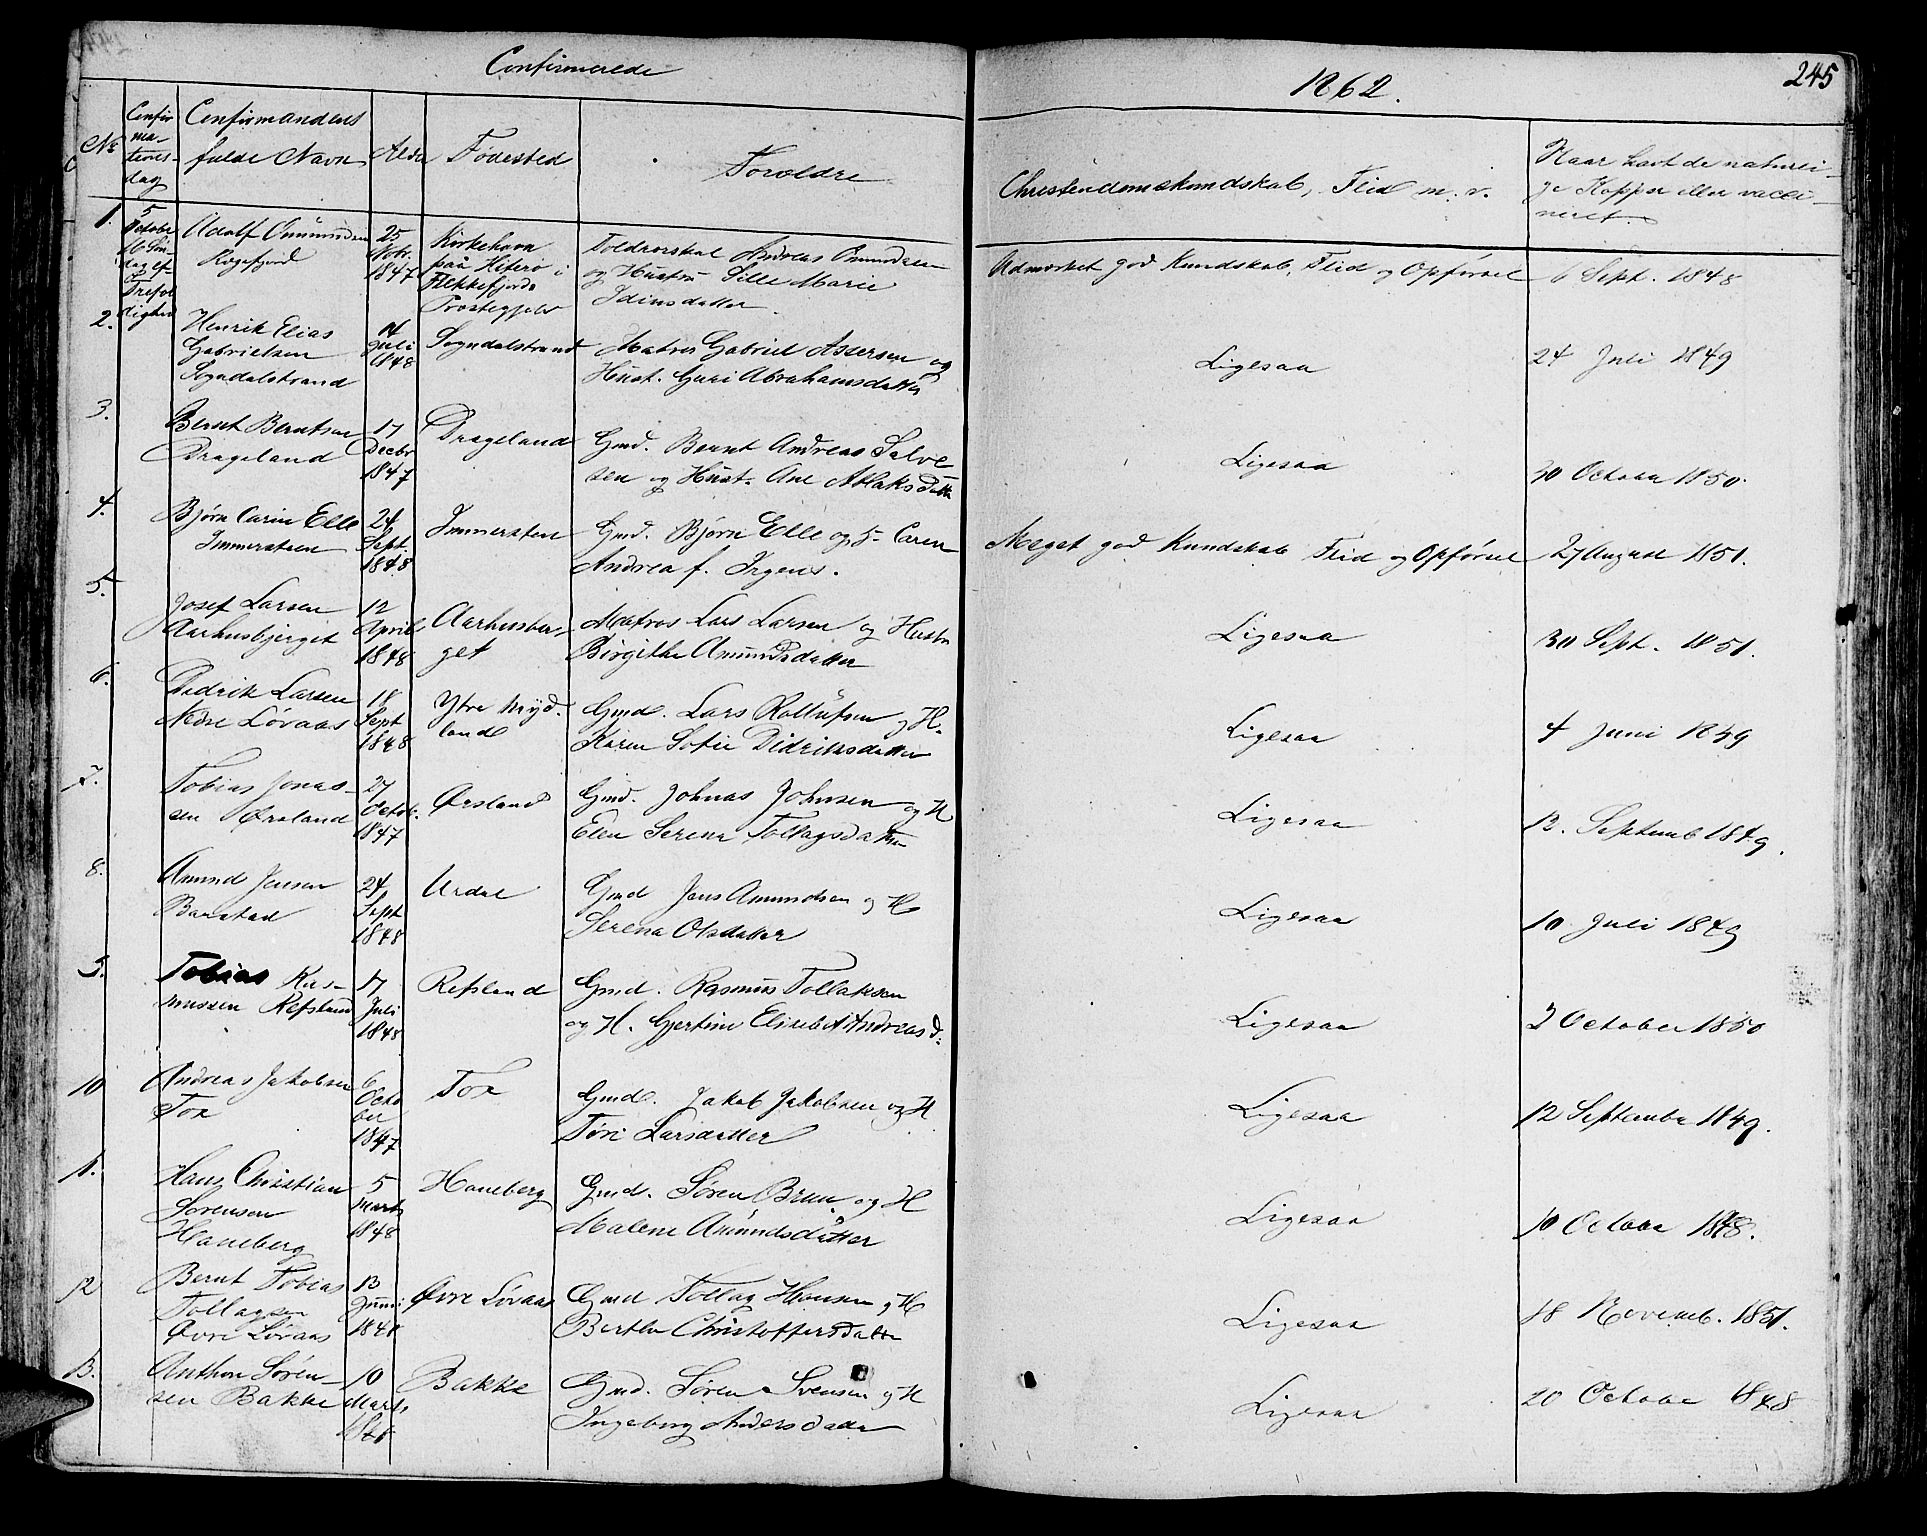 Confirmerede
1862.
245
No
Confir
ma-
tions-
dag
Confirmandens
fulde Navn
Alder
Fødested
Forældre
Christendomskundskab, Flid m. v.
Naar havt de naturli-
ge Kopper eller vacci-
neret.
1.
5
October
16 Søn-
dag ef-
ter
Trefol
dighed
Adolf Omundsen
Regefjord
25
Nobr.
1847
Kirkehavn
paa Hiterø i
Flekkefjords
Prostegjeld
Andreas Omundsen
og Hustru Sille Marie
Udmærket god Kundskab, Flid og Opførsel
6 Sept. 1848
2.
Henrik Elias
Gabrielsen
Sogndalstrand
14
Juli
1848
Sogndalstrand
Matros Gabriel Assersen og
Hust. Guri Abrahamsdatter
Ligesaa
24 Juli 1849
3.
Bernt Berntsen
Drageland
17
Decbr
1847
Drageland
Gmd. Bernt Andreas Salve
sen og Hust. Ane Atlaksdatter
Ligesaa
30 October 1850.
4.
Bjørn Carin Elle
Immersteen
24
Sept.
1848
Immersteen
Gmd. Bjørn Elle og H. Caren
Andrea f. Irgens.
Meget god Kundskab Flid og Opførsel
27 August 1851.
5.
Josef Larsen
Aarhusbjerget
12
April
1848
Aarhusber-
get
Matros Lars Larsen og Hustru
Birgithe Amundsdatter
Ligesaa
30 Sept. 1851.
6.
Didrik Larsen
Nedre Løvaas
18
Sept
1848
Ytre Myd-
land
Gmd. Lars Rollufsen og H.
Karen Sofie Didriksdatter
Ligesaa
4 Juni 1849
7.
Tobias Jonas-
sen Ørsland
27
Octob.
1847
Ørsland
Gmd. Johnas Johnsen og H
Elen Serena Tollagsdatter
Ligesaa
12. Septemb 1849.
8.
Amund Jensen
Barstad
24
Sept
1848
Urdal
Gmd Jens Amundsen og H
Serena Olsdatter
Ligesaa
10 Juli 1849
9.
Tobias Ras-
mussen Refsland
17
Juli
1848
Refsland
Gmd. Rasmus Tollaksen
og H. Gjertine Elisabet Andreasd.
Ligesaa
2 October 1850
10
Andreas Jakobsen
Tox
6
Octo
ber
1847
Tox
Gmd. Jakob Jakobsen og H
Tøri Larsdatter
Ligesaa
12 September 1849.
11.
Hans Christian
Sørensen
Haneberg
5
Marts
1848
Haneberg
Gmd. Søren Brun og H
Malene Amundsdatter
Ligesaa
10 October 1848.
12
Bernt Tobias
Tollagsen
Øvre Løvaas
13
Juni
1848
Øvre Løvaas
Gmd Tollag Hansen og H
Berthe Christoffersdatter
Ligesaa
18 Novemb. 1851.
13.
Anthon Søren-
sen Bakke
10
Marts
1848
Bakke
Gmd. Søren Svensen og H
Ingeborg Andersdatter
Ligesaa
20 October 1848